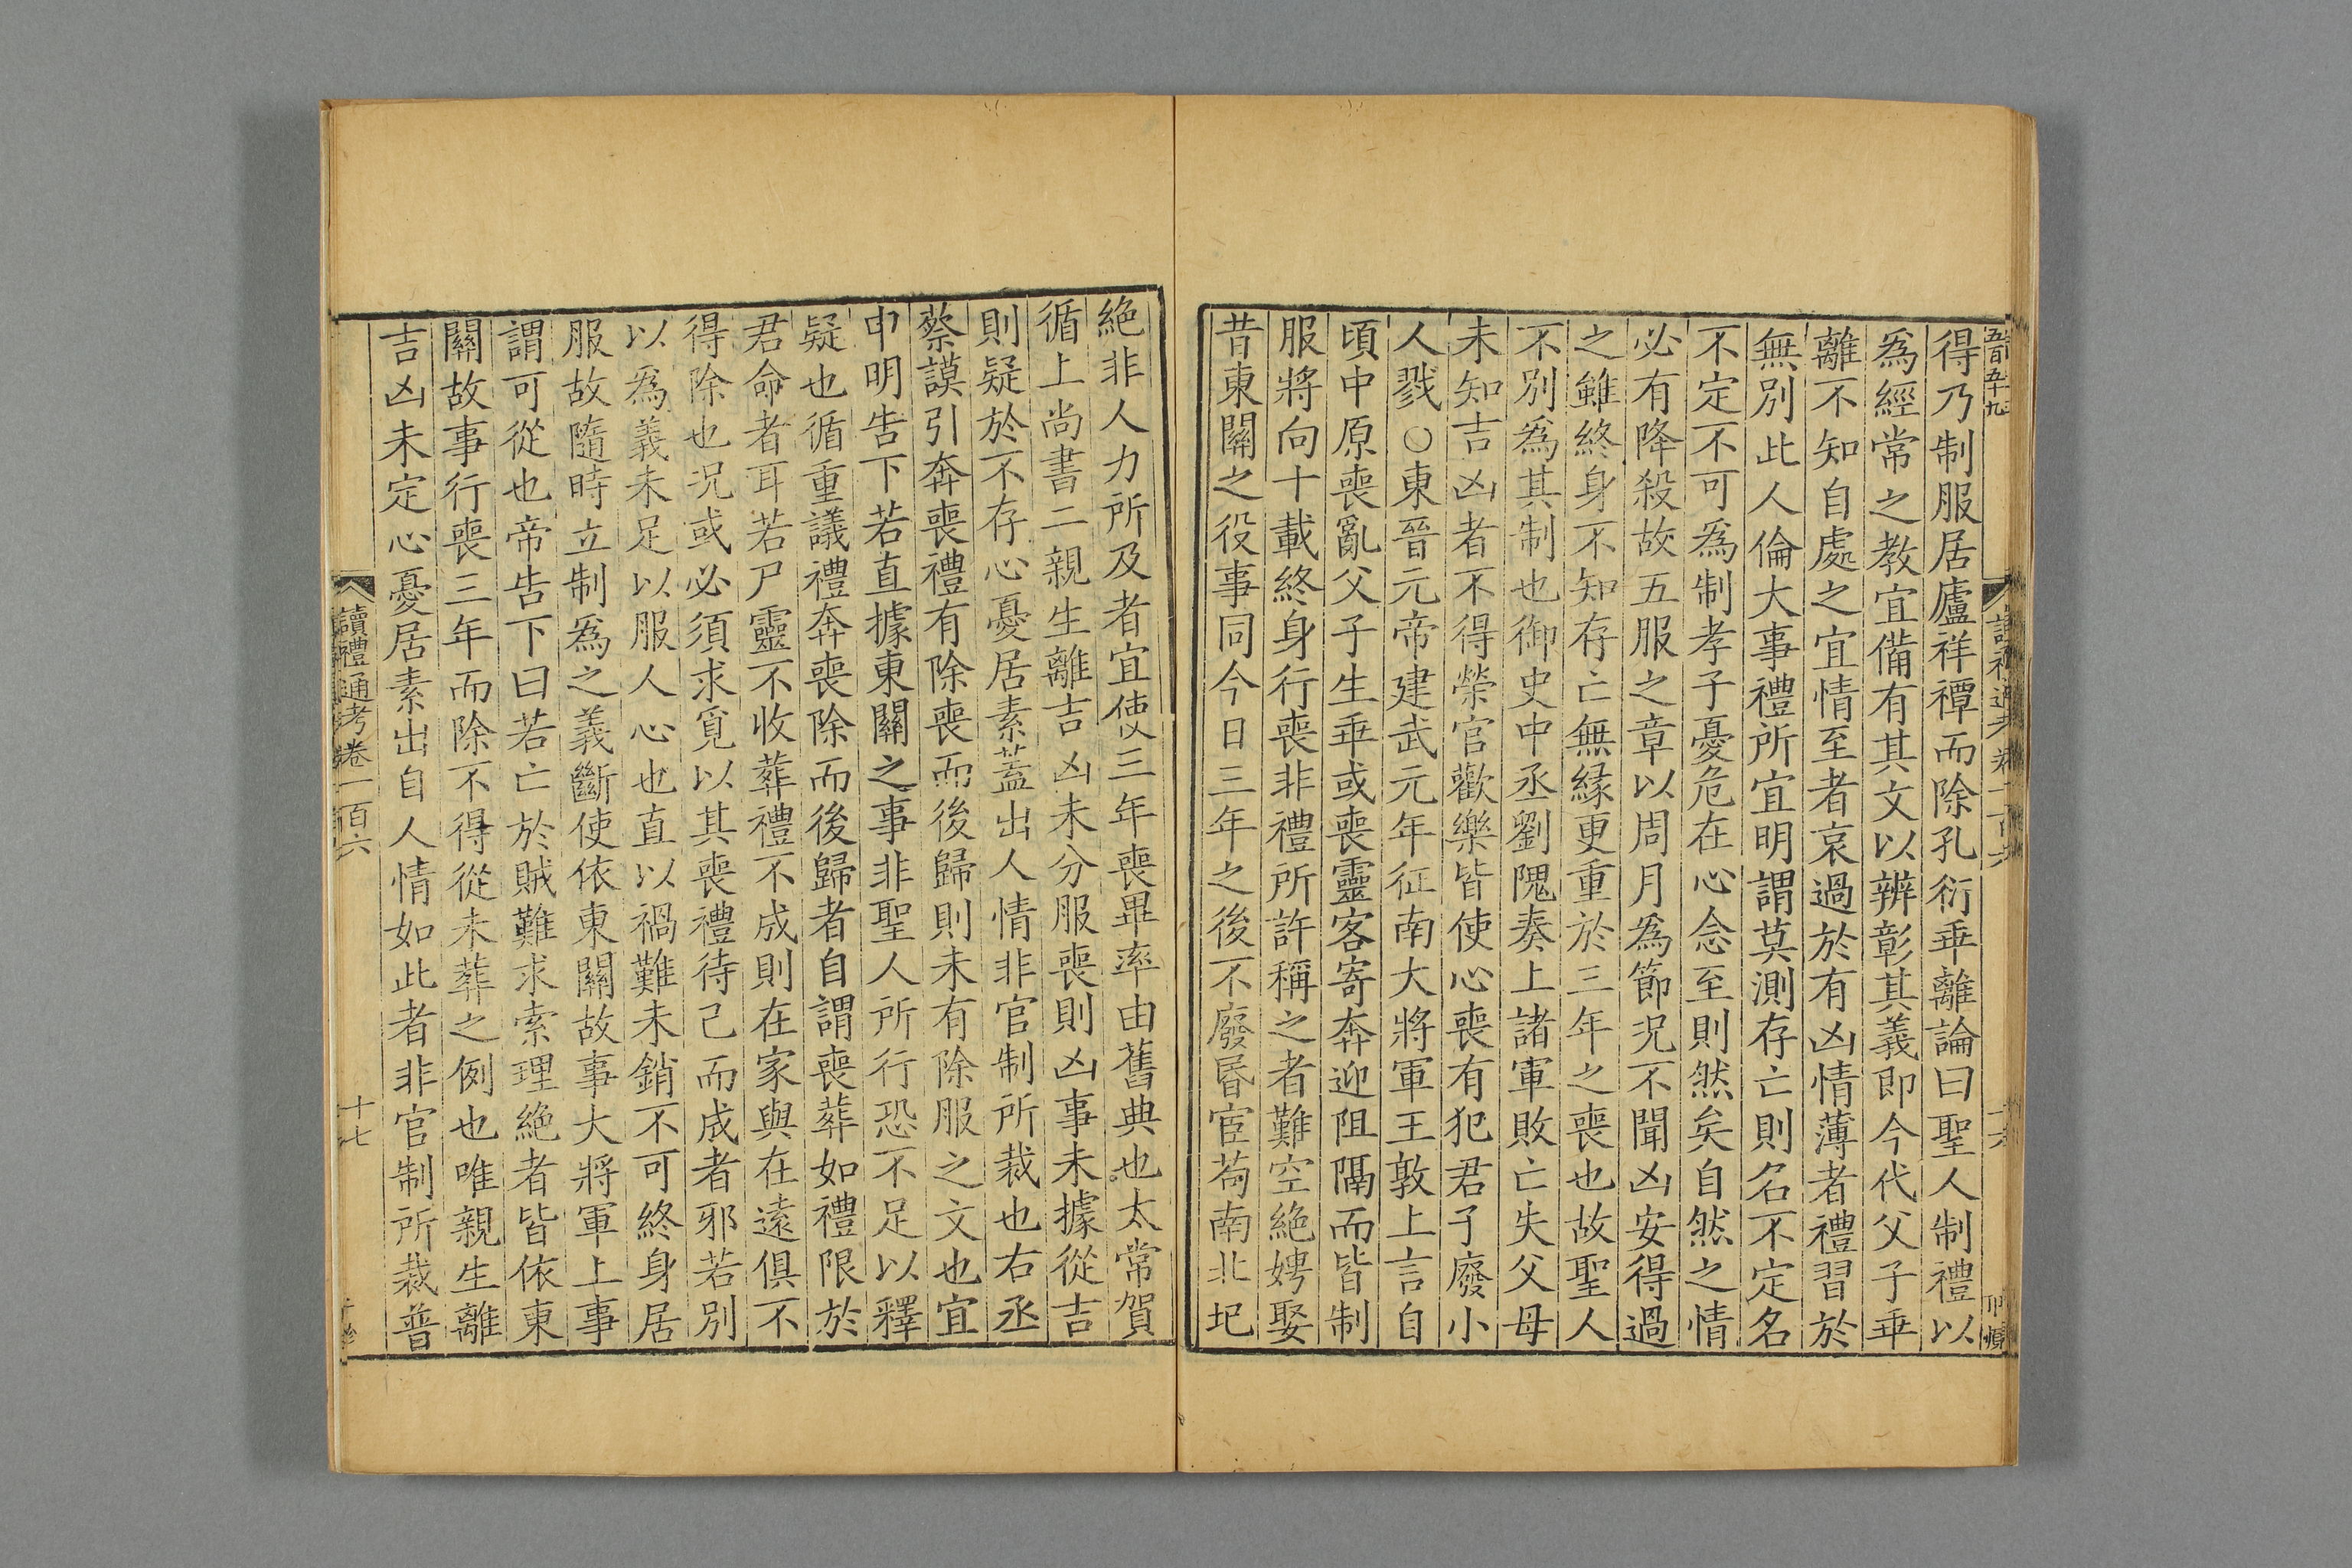 五百五十九
讀禮通考 卷一百六
十六
得乃制服居廬祥禫而除孔衍乖離論曰聖人制禮以
爲經常之教宜備有其文以辨彰其義即今代父子乖
離不知自處之宜情至者哀過於有凶情薄者禮習於
無別此人倫大事禮所宜明謂莫測存亡則名不定名
不定不可爲制孝子憂危在心念至則然矣自然之情
必有降殺故五服之章以周月爲節況不聞凶安得過
之雖終身不知存亡無緣更重於三年之喪也故聖人
不別爲其制也御史中丞劉隗奏上諸軍敗亡失父母
未知吉凶者不得榮官歡樂皆使心喪有犯君子廢小
人戮○東晉元帝建武元年征南大將軍王敦上言自
頃中原喪亂父子生乖或喪靈客寄奔迎阻隔而皆制
服將向十載終身行喪非禮所許稱之者難空絶娉娶
昔東關之役事同今日三年之後不廢昬宦苟南北圯
絶非人力所及者宜使三年喪畢率由舊典也太常賀
循上尚書二親生離吉凶未分服喪則凶事未據從吉
則疑於不存心憂居素蓋出人情非官制所裁也右丞
蔡謨引奔喪禮有除喪而後歸則未有除服之文也宜
申明告下若直據東關之事非聖人所行恐不足以釋
疑也循重議禮奔喪除而後歸者自謂喪葬如禮限於
君命者耳若尸靈不收葬禮不成則在家與在遠俱不
得除也況或必須求覓以其喪禮待己而成者邪若別
以爲義未足以服人心也直以禍難未銷不可終身居
服故隨時立制爲之義斷使依東關故事大將軍上事
謂可從也帝告下曰若亡於賊難求索理絶者皆依東
關故事行喪三年而除不得從未葬之例也唯親生離
吉凶未定心憂居素出自人情如此者非官制所裁普
讀禮通考卷一百六
十七